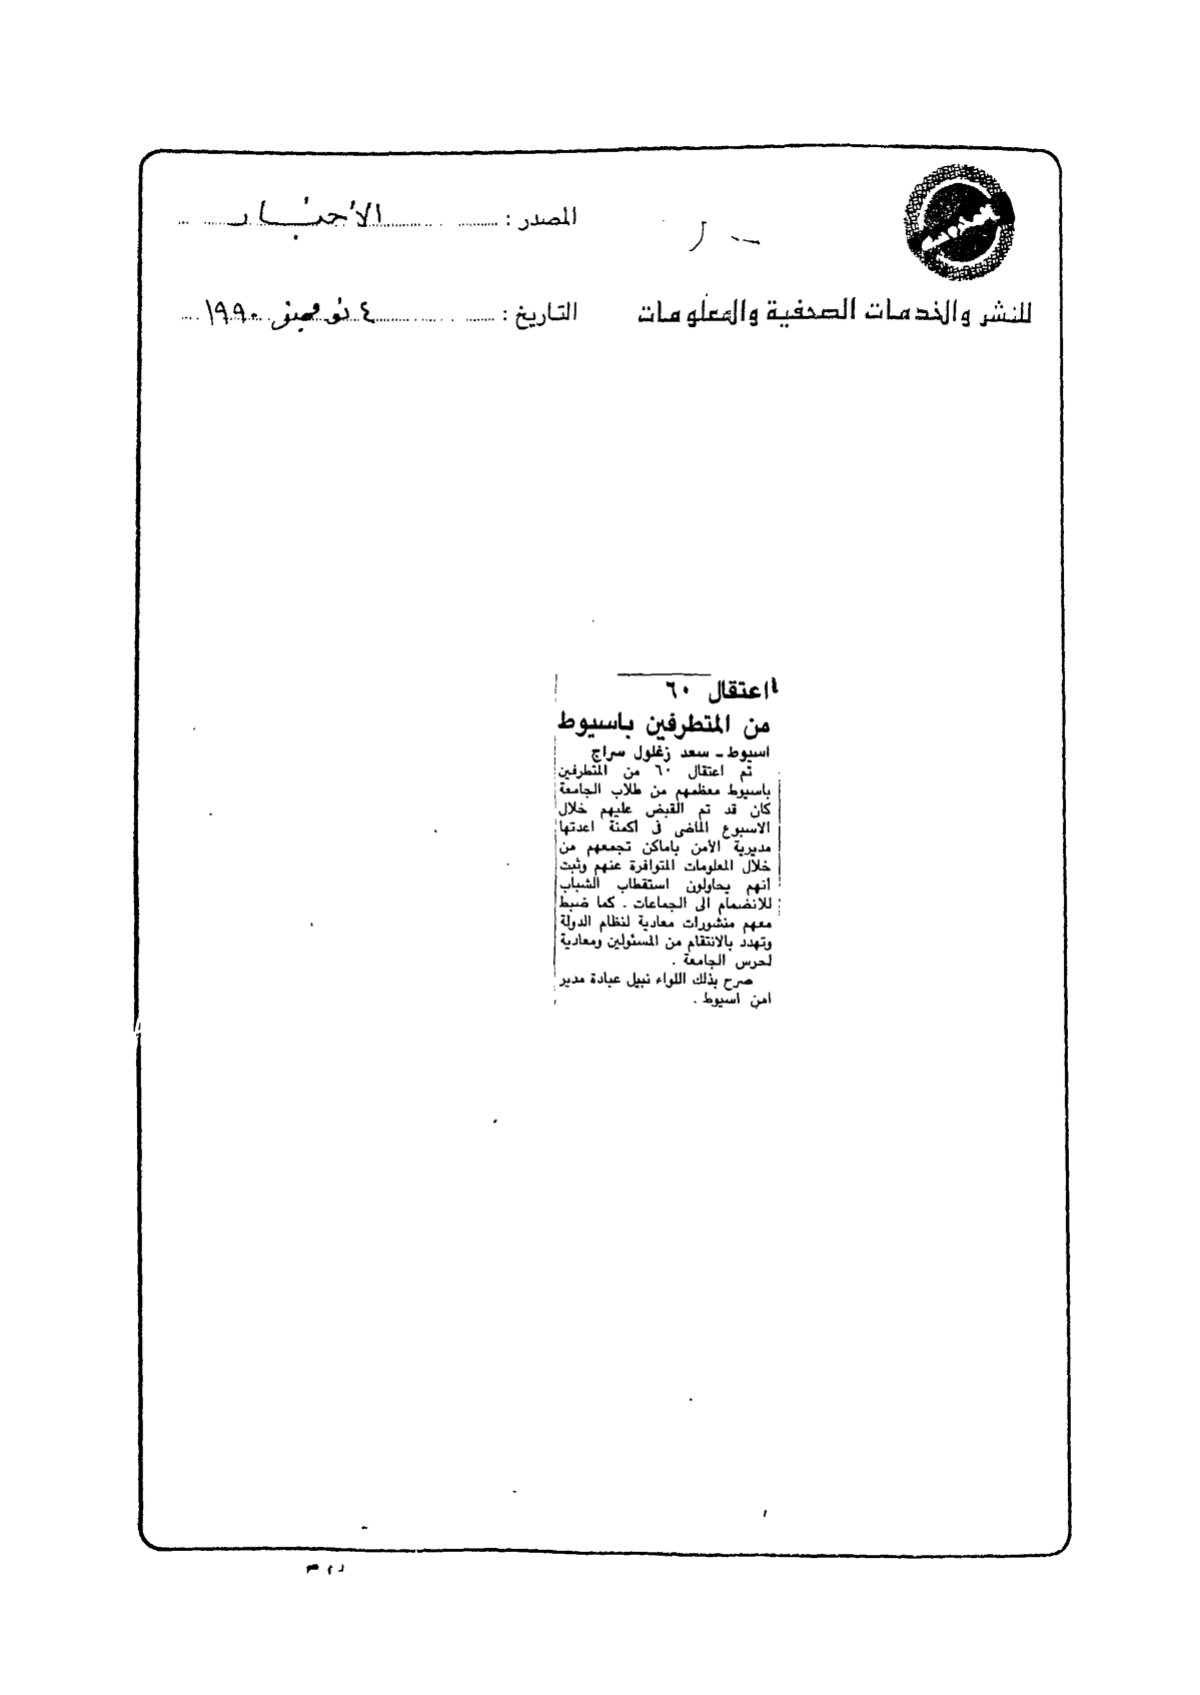 المصدر : الأخبار
للنشر والخدمات الصحفية والمعلومات
التاريخ : ٤ نوفمبر ١٩٩٠
اعتقال ٦٠
من المتطرفين باسيوط
اسيوط ـ سعد زغلول سراج
تم اعتقال ٦٠ من المتطرفين
باسيوط معظمهم من طلاب الجامعة
كان قد تم القبض عليهم خلال
الاسبوع الماضى فى اكمنة اعدتها
مديرية الأمن باماكن تجمعهم من
خلال المعلومات المتوافرة عنهم وثبت
أنهم يحاولون استقطاب الشباب
للانضمام الى الجماعات . كما ضبط
معهم منشورات معادية لنظام الدولة
وتهدد بالانتقام من المسئولين ومعادية
لحرس الجامعة .
صرح بذلك اللواء نبيل عبادة مدير
امن اسيوط .